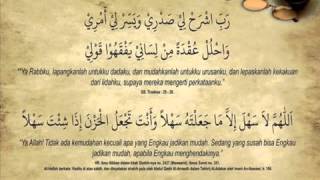 رَبِّ اشْرَحْ لِي صَدْرِي وَيَسِّرْ لِي أَمْرِي
وَاحْلُلْ عُقْدَةً مِنْ لِسَانِي يَفْقَهُوا قَوْلِي
"Ya Rabbiku, lapangkanlah untukku dadaku, dan mudahkanlah untukku urusanku, dan lepaskanlah kekakuan
dari lidahku, supaya mereka mengerti perkataanku."
QS. Thaahaa : 25 - 28.
اَللَّهُمَّ لاَ سَهْلَ إِلاَّ مَا جَعَلْتَهُ سَهْلاً وَأَنْتَ تَجْعَلُ الْحَزْنَ إِذَا شِئْتَ سَهْلاً
"Ya Allah! Tidak ada kemudahan kecuali apa yang Engkau jadikan mudah. Sedang yang susah bisa Engkau
jadikan mudah, apabila Engkau menghendakinya."